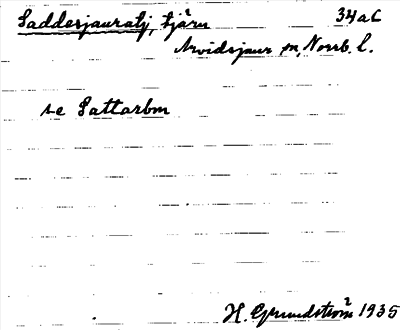 Saddesjauratj, tjärn 34aC
Arvidsjaur sn, Norrb. l.
se Sattarbm
H. Grundström 1935